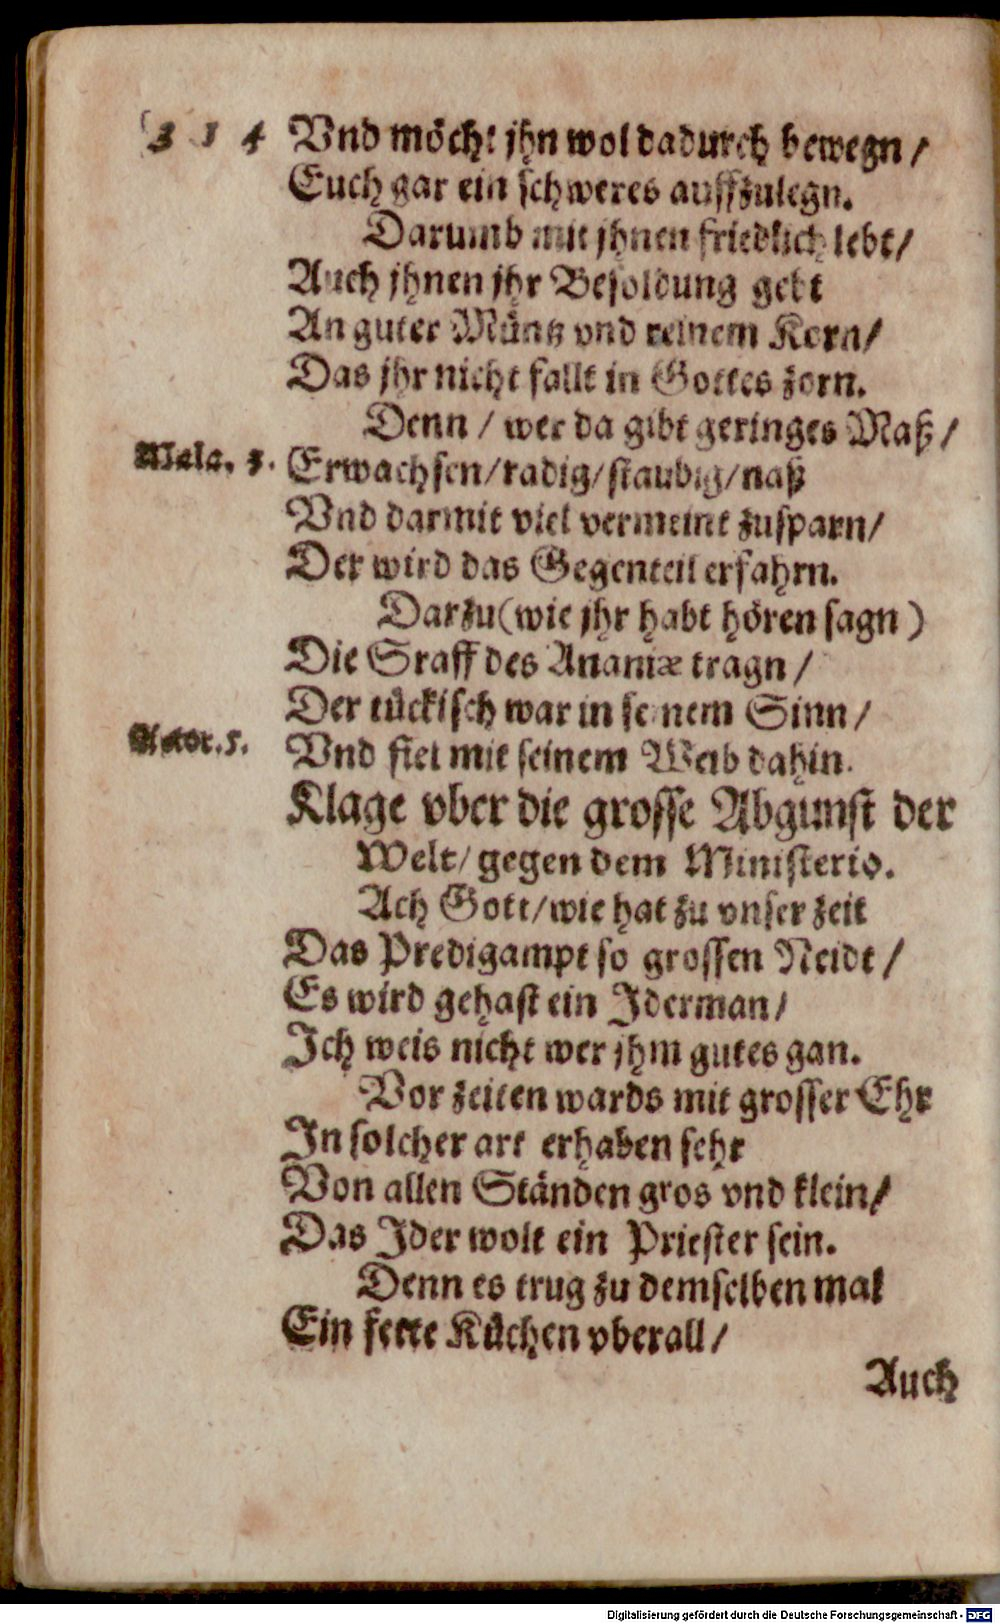 314
Vnd möcht jhn wol dadurch bewegn /
Euch gar ein schweres auffzulegn.
Darumb mit jhnen friedlich lebt /
Auch jhnen jhr Besoldung gebt
An guter Müntz vnd reinem Korn /
Das jhr nicht fallt in Gottes zorn.
Denn / wer da gibt geringes Maß /
Mala. 3.
Erwachsen / radig / staubig / naß
Vnd darmit viel vermeint zusparn /
Der wird das Gegenteil erfahrn.
Darzu (wie jhr habt hören sagn)
Die Sraff des Ananiæ tragn /
Der tückisch war in seinem Sinn /
Actor. 5.
Vnd fiel mit seinem Weib dahin.
Klage vber die grosse Abgunst der
Welt / gegen dem Ministerio.
Ach Gott / wie hat zu vnser zeit
Das Predigampt so grossen Neidt /
Es wird gehast ein Jderman /
Ich weis nicht wer jhm gutes gan.
Vor zeiten wards mit grosser Ehr
In solcher art erhaben sehr
Von allen Ständen gros vnd klein /
Das Jder wolt ein Priester sein.
Denn es trug zu demselben mal
Ein fette Küchen vberall /
Auch
Digitalisierung gefördert durch die Deutsche Forschungsgemeinschaft - DFG